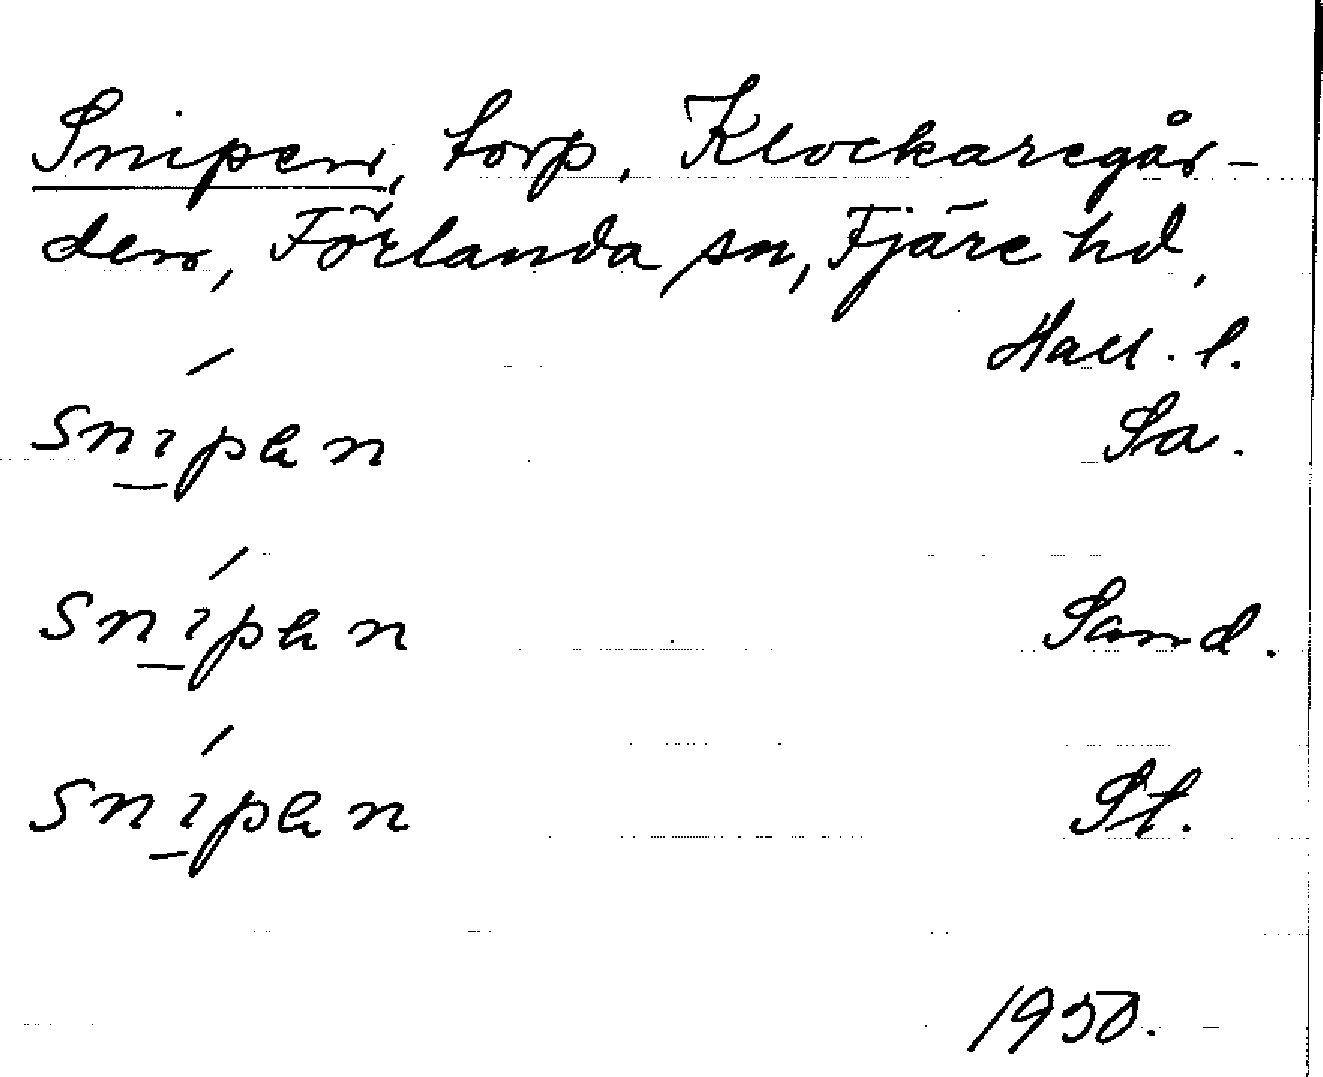 Snipen, torp, Klockaregår-
den, Förlanda sn, Fjäre hd,
Hall. l.
snípan Sa.
snípan Sand.
snípan St.
1950.